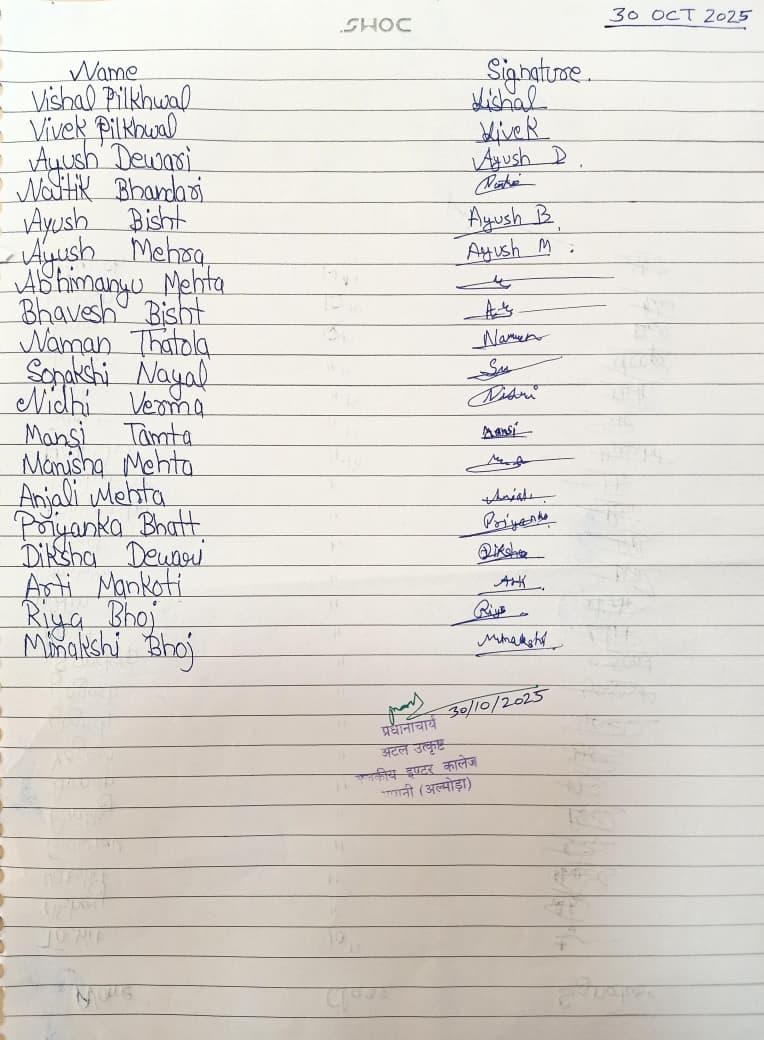 SHOC
30 OCT 2025
Name Signature.
Vishal Pilkhwal Vishal
Vivek Pilkhwal Vivek
Ayush Dewari Ayush D.
Naitik Bhandari
Ayush Bisht Ayush B.
Ayush Mehra Ayush M.
Abhimanyu Mehta
Bhavesh Bisht
Naman Thatola Naman
Sonakshi Nayal
Nidhi Verma Nidhi
Mansi Tamta Mansi
Manisha Mehta
Anjali Mehta
Priyanka Bhatt Priyanka
Diksha Dewari Diksha
Arti Mankoti
Riya Bhoj Riya
Minakshi Bhoj Minakshi
30/10/2025
प्रधानाचार्य
अटल उत्कृष्ट
इण्टर कालेज
(अल्मोड़ा)